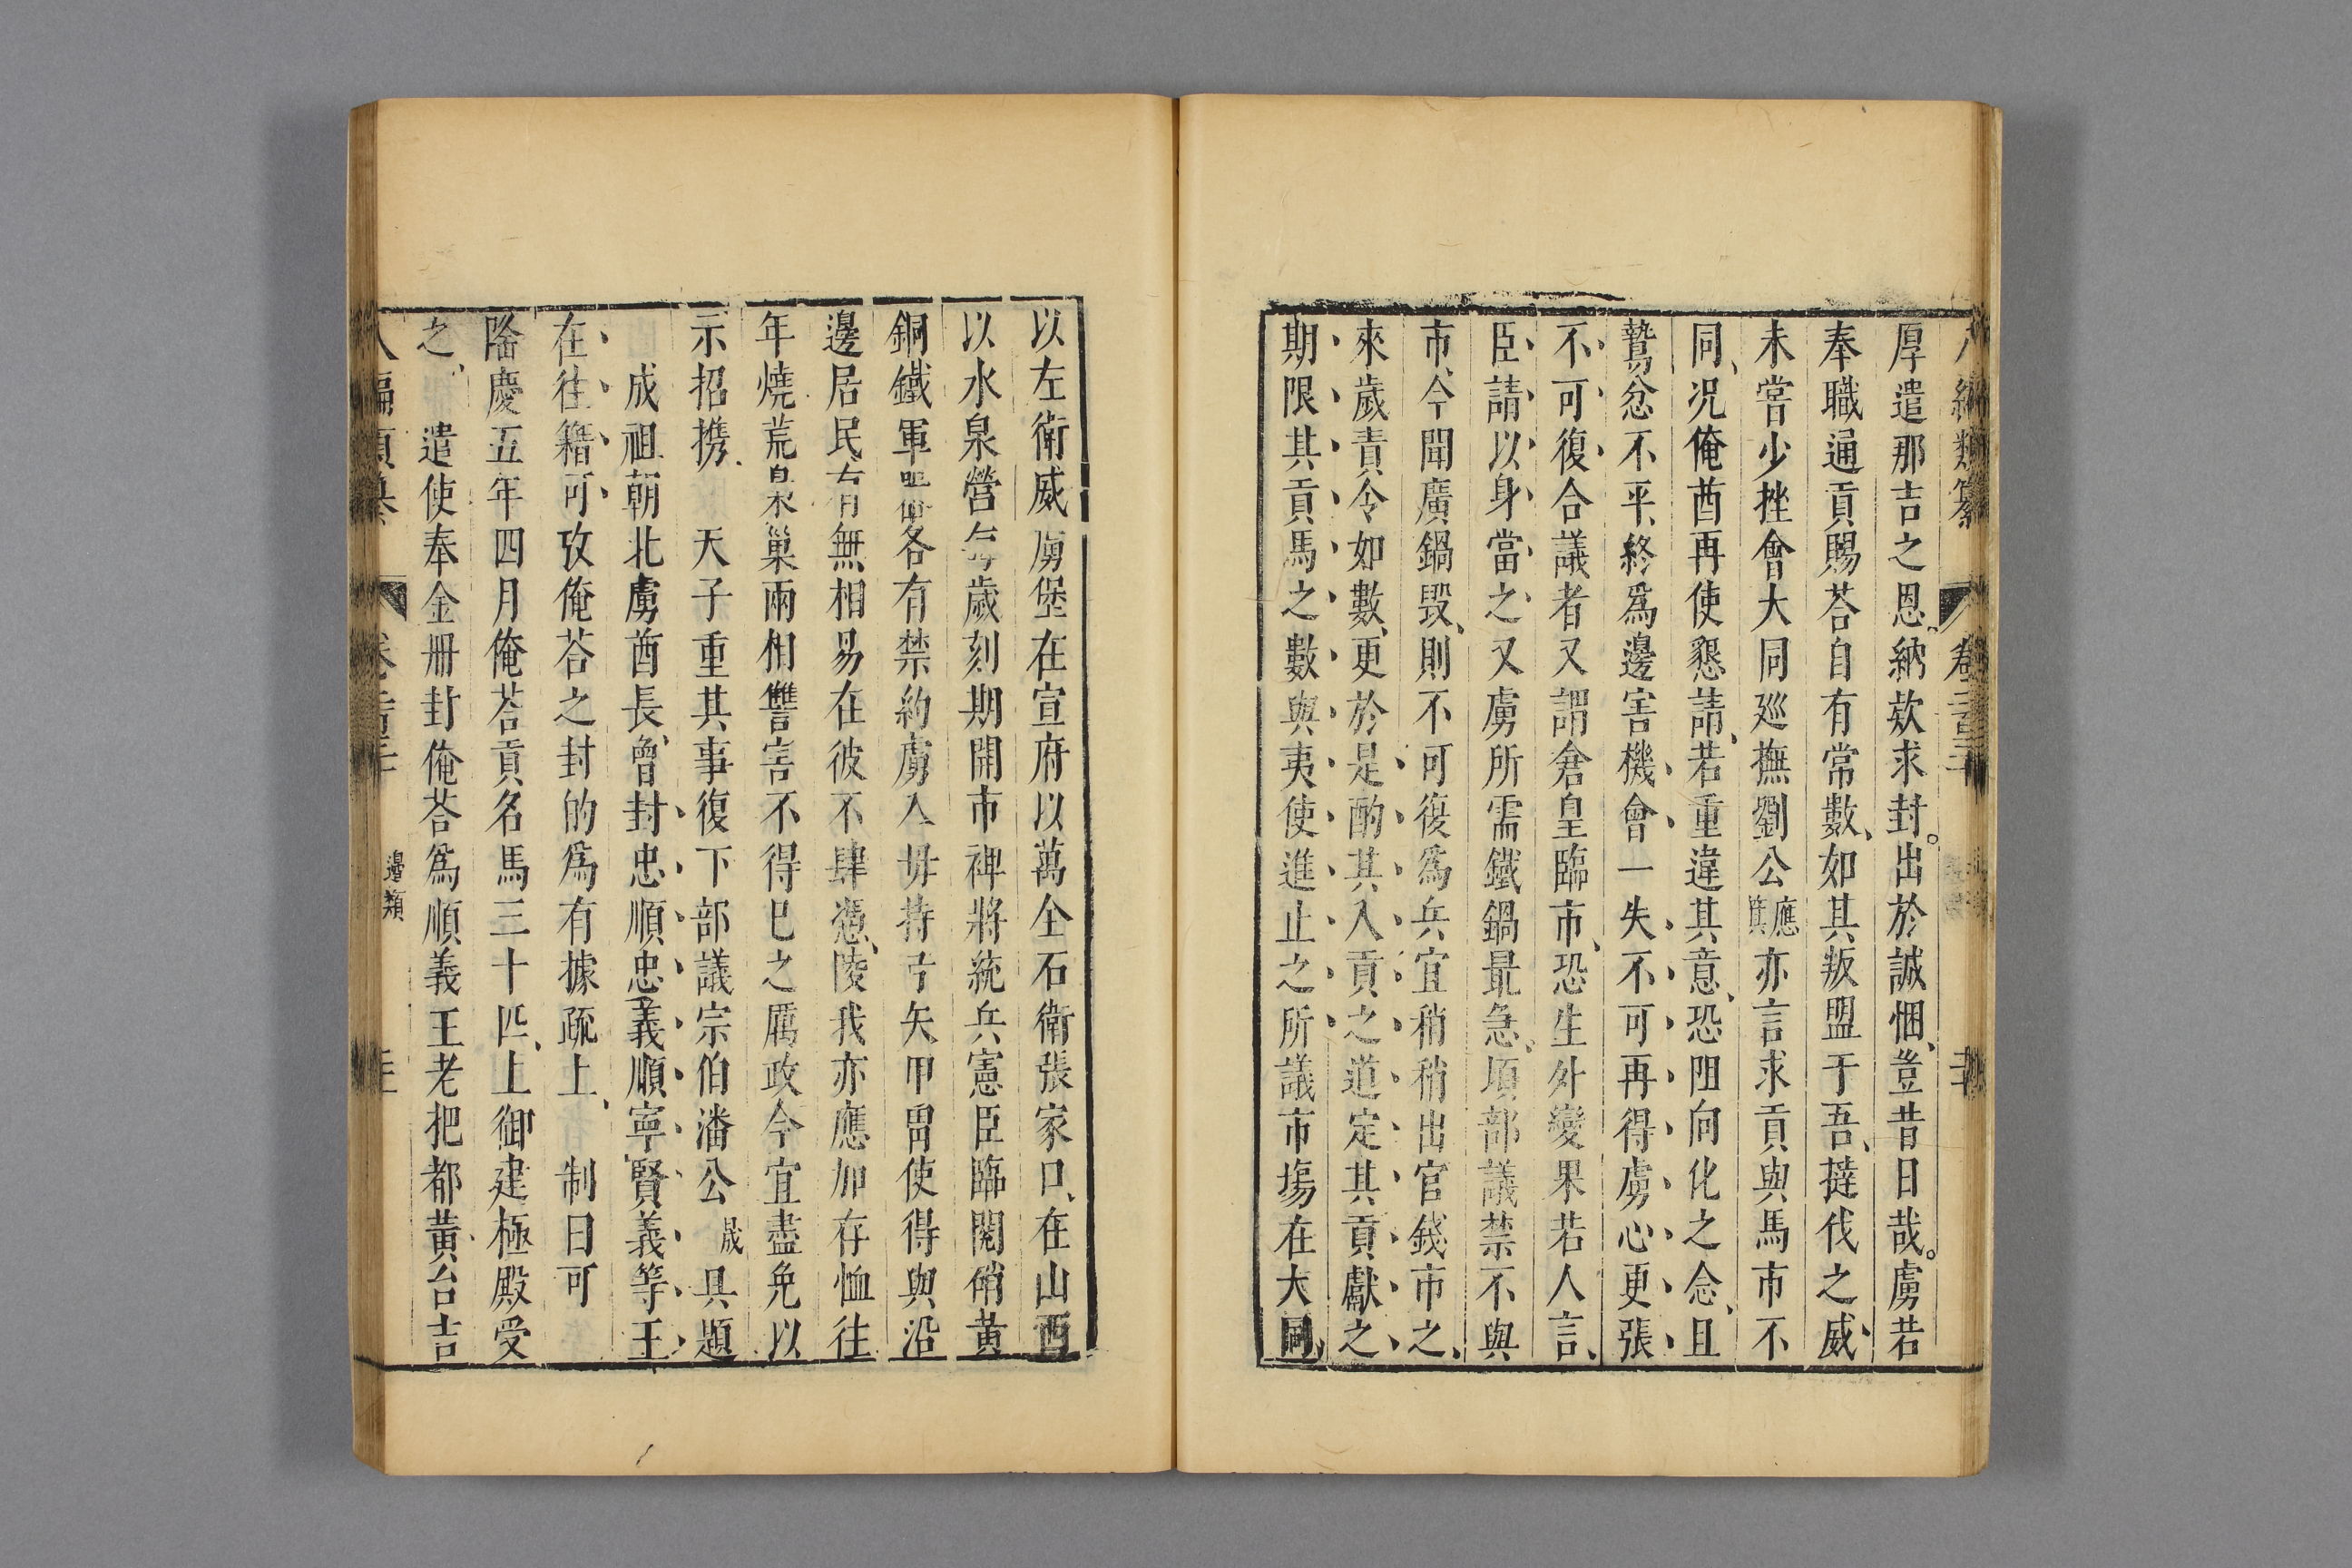 厚遣那吉之恩、納欵求封。出於誠悃、豈昔日哉。虜若
奉職通貢賜荅自有常數、如其叛盟于吾、撻伐之威、
未嘗少挫會大同廵撫劉公應箕亦言求貢與馬市不
同、况俺酋再使懇請、若重違其意、恐阻向化之念、且
鷙忿不平、終爲邊害機會一失不可再得虜心更張
不可復合議者又謂倉皇臨市、恐生外變果若人言、
臣請以身當之又虜所需鐵鍋最急、項部議禁不與
市、今聞廣鍋毀、則不可復爲兵宜稍稍出官錢市之、
來歲責令如數、更於是酌其入貢之道定其貢獻之
期限其貢馬之數與夷使進止之所議市塲在大同、
以左衛威虜堡在宣府以萬全右衛張家口、在山西
以水泉營每歲刻期開市裨將統兵憲臣臨閱硝黄
銅鐵軍器俻各有禁約虜人毋持寸矢甲胄使得與沿
邊居民、有無相易在彼不肆慿、陵我亦應加存恤往
年燒荒臬巢兩相讐害不得已之厲政今宜盡免以
示招携、天子重其事復下部議宗伯潘公晟具題
成祖朝北虜酋長、曾封忠順忠義順寧賢義等王
在往籍可攷俺荅之封的爲有據疏上、制曰可
隆慶五年四月俺荅貢名馬三十匹、上御建極殿受
之、遣使奉金册封俺荅爲順義王老把都黄台吉
八編類纂 卷 邊類